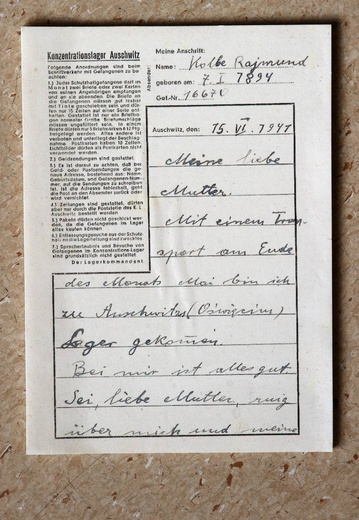 Konzentrationslager Auschwitz
Folgende Anordnungen sind beim
Schriftverkehr mit Gefangenen zu be-
achten:
1.) Jeder Schutzhaftgefangene darf im
Monat zwei Briefe oder zwei Karten
von seinen Angehörigen empfangen
und an sie absenden. Die Briefe an
die Gefangenen müssen gut lesbar
mit Tinte geschrieben sein und dür-
fen nur 15 Zeilen auf einer Seite ent-
halten. Gestattet ist nur ein Briefbo-
gen normaler Größe. Briefumschläge
müssen ungefüttert sein. In einem
Briefe dürfen nur 5 Briefmarken à 12 Pfg.
beigelegt werden. Alles andere ist
verboten und unterliegt der Beschlag-
nahme. Postkarten haben 10 Zeilen.
Lichtbilder dürfen als Postkarten nicht
verwendet werden.
2.) Geldsendungen sind gestattet.
3.) Es ist darauf zu achten, daß bei
Geld- oder Postsendungen die ge-
naue Adresse, bestehend aus: Name,
Geburtsdatum, und Gefangenen-Num-
mer, auf die Sendungen zu schreiben
ist. Ist die Adresse fehlerhaft, geht
die Post an den Absender zurück oder
wird vernichtet.
4.) Zeitungen sind gestattet, dürfen
aber nur durch die Poststelle des K. L.
Auschwitz bestellt werden.
5.) Pakete dürfen nicht geschickt wer-
den, da die Gefangenen im Lager
alles kaufen können.
6.) Entlassungsgesuche aus der Schutz-
haft an die Lagerleitung sind zwecklos.
7.) Sprecherlaubnis und Besuche von
Gefangenen im Konzentrations-Lager
sind grundsätzlich nicht gestattet.
Der Lagerkommandant
Absender:
Meine Anschrift:
Name: Kolbe Rajmund
geboren am: 7. I 1894
Gef.-Nr. 16670
Auschwitz, den: 15. VI. 1941
Meine liebe
Mutter.
Mit einem Tran-
sport am Ende
des Monats Mai bin ich
zu Auschwitz (Oświęcim)
Lager gekommen.
Bei mir ist alles gut.
Sei, liebe Mutter, ruig
über mich und meine